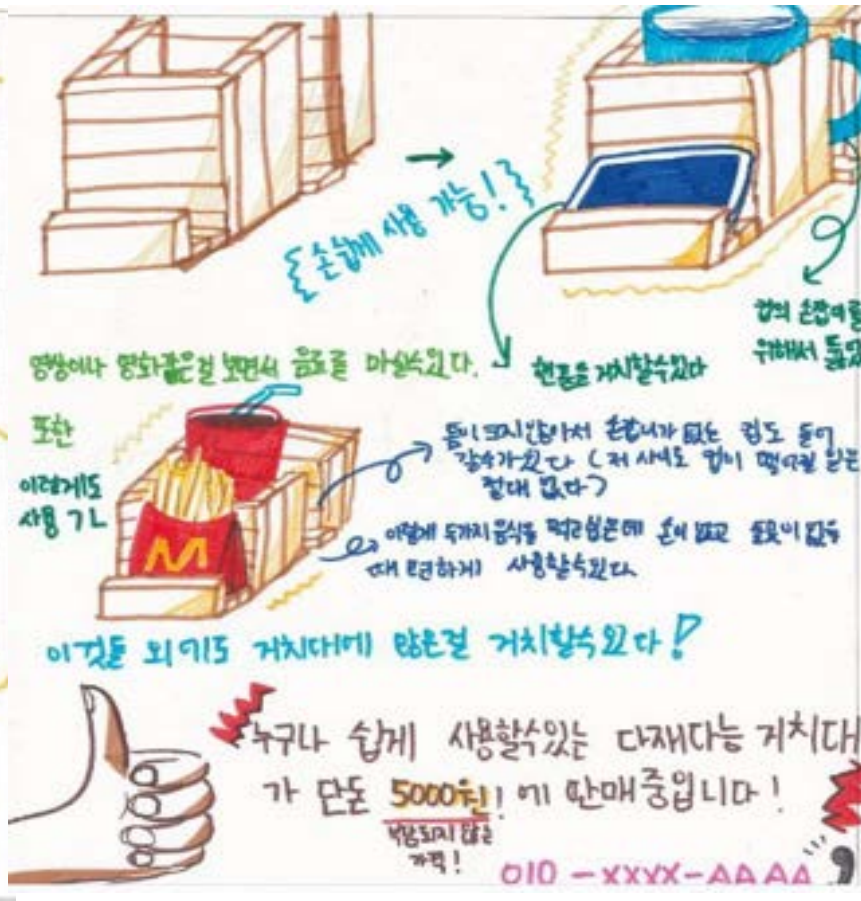 손쉽게 사용 가능!
영상이나 영화같은걸 보면서 음료를 마실수있다.
핸드폰을 거치할수있다
컵의 손잡이를
위해서
또한
이렇게도
사용
틈이 크지않아서 손잡이가 없는 컵도 들어
갈수가있다 (저 사이로 컵이 떨어질 일은
절대 없다)
이렇게 두가지 음식을 먹고싶은데 손이 없고 놓을곳이 없을
때 편하게 사용할수있다
이것들 외에도 거치대에 많은걸 거치할수있다!
누구나 쉽게 사용할수있는 다재다능 거치대
가 단돈 5000원! 에 판매중입니다!
부담되지 않는
가격!
010 - XXXX-AAAA
M